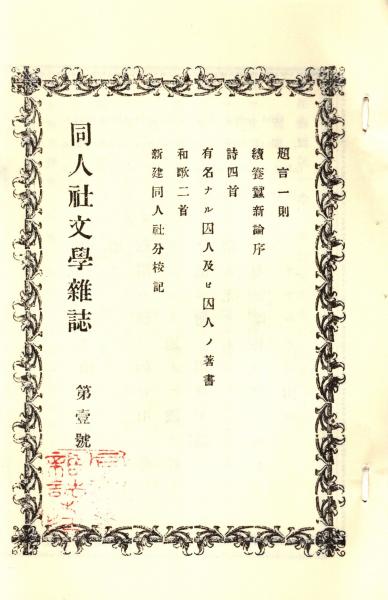 題言一則
續養蠶新論序
詩四首
有名ナル囚人及ヒ囚人ノ著書
和歌二首
新建同人社分校記
同人社文學雜誌 第壹號